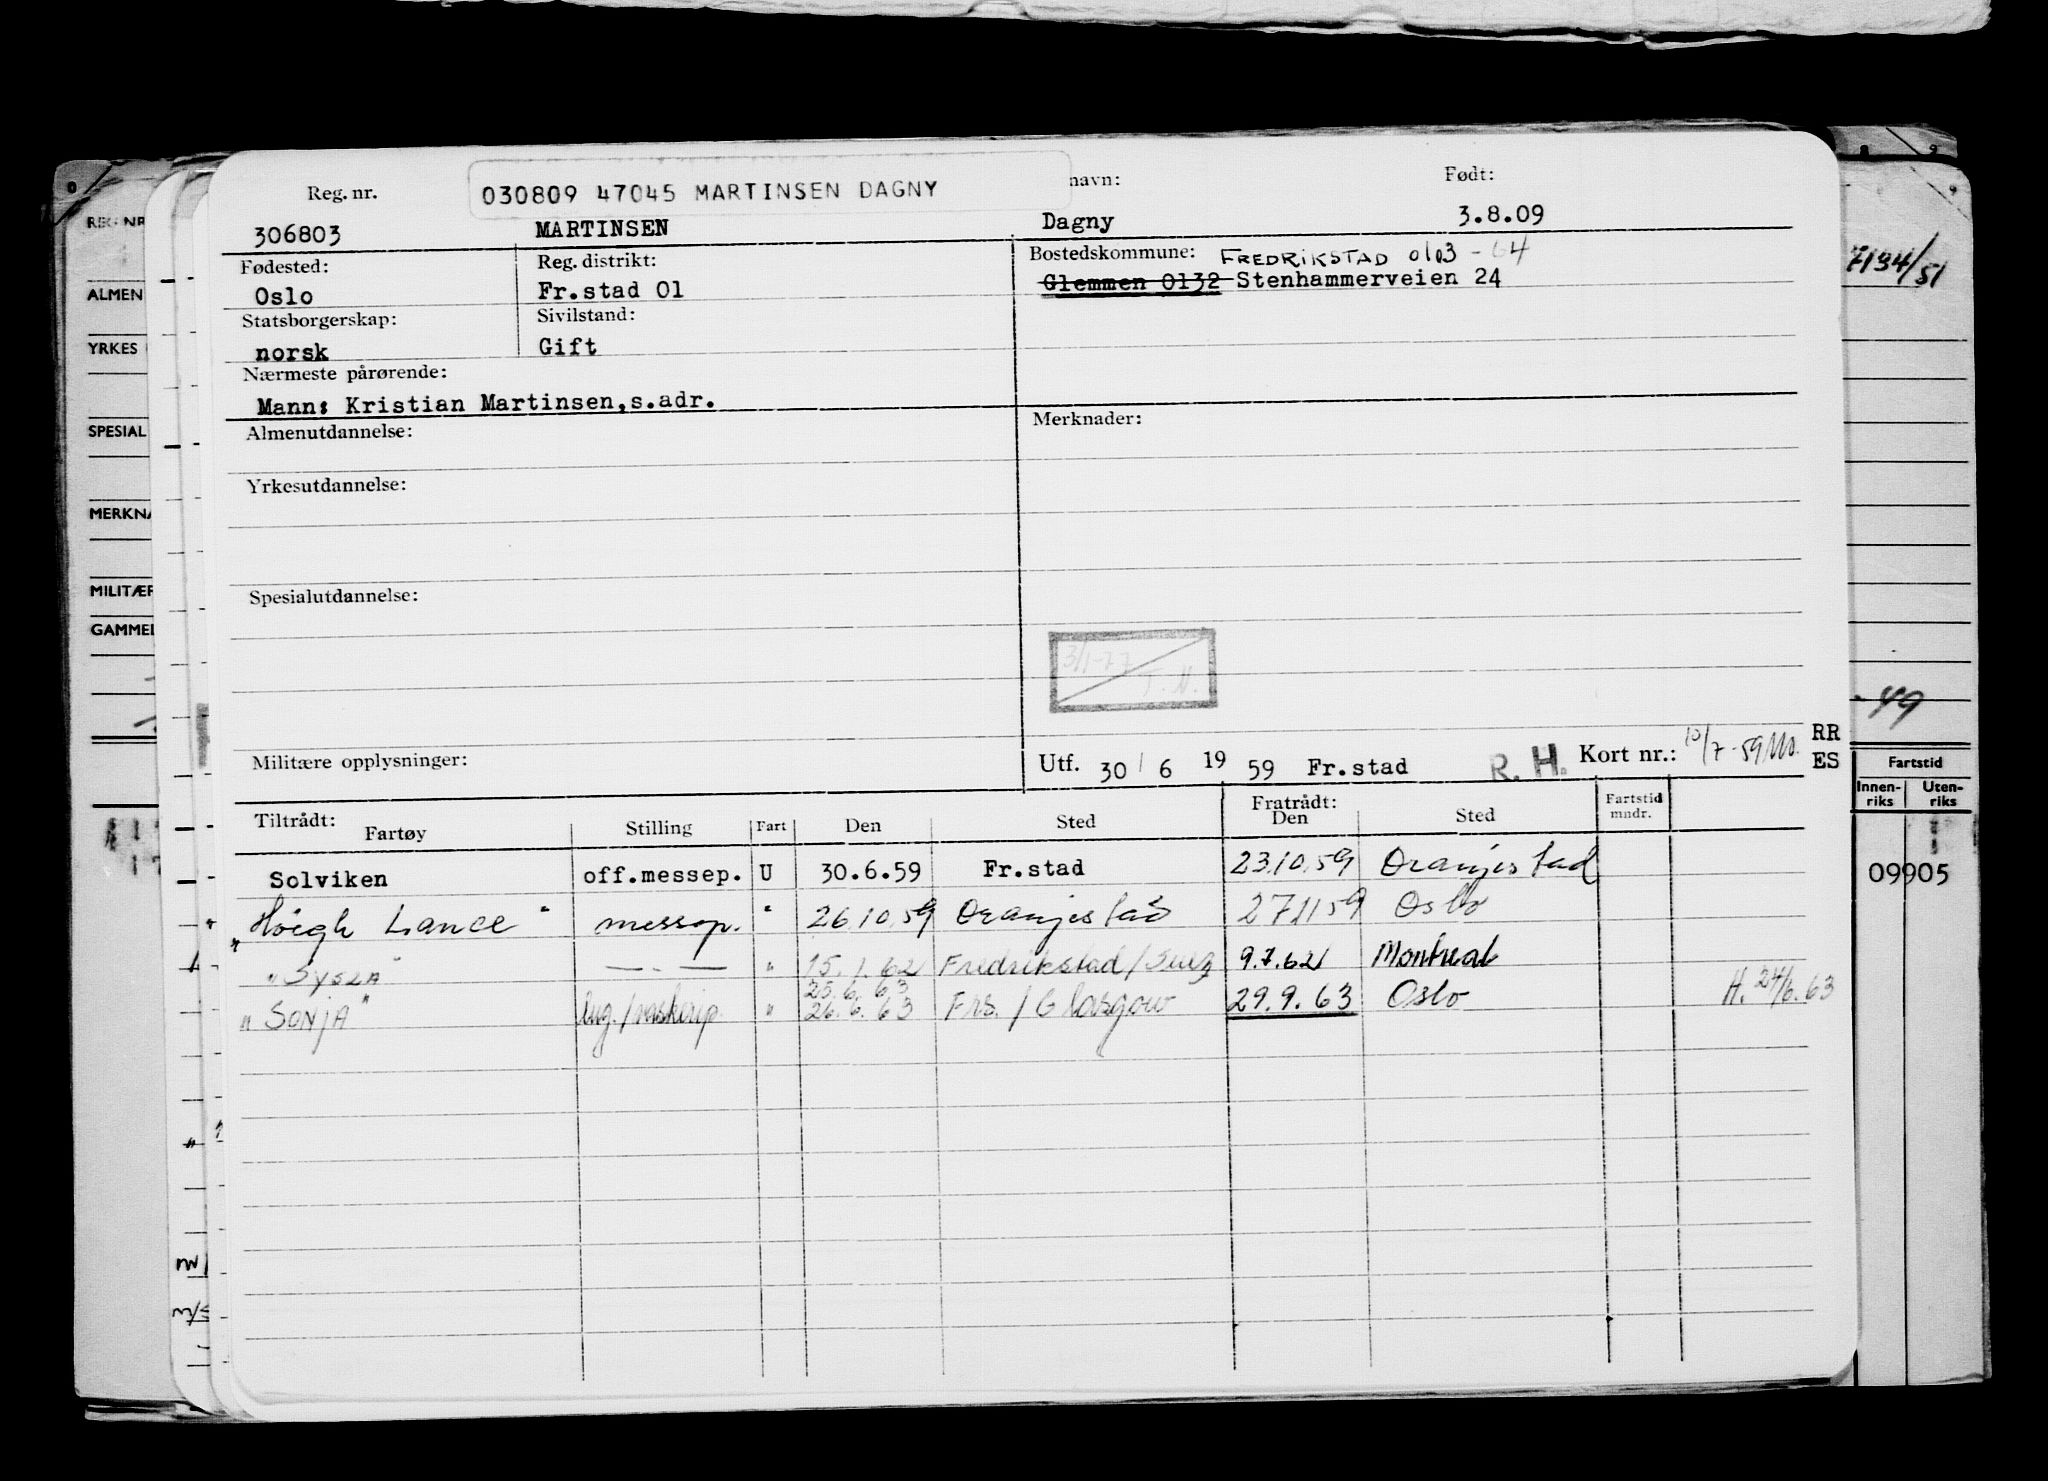 Reg. nr. 030809 47045 MARTINSEN DAGNY navn: Født:
306803 MARTINSEN Dagny 3.8.09
Fødested: Reg. distrikt: Bostedskommune: FREDRIKSTAD 0103 - 64
Oslo Fr.stad 01 Glemmen 0132 Stenhammerveien 24
Statsborgerskap: Sivilstand:
norsk Gift
Nærmeste pårørende:
Mann: Kristian Martinsen,s.adr.
Almenutdannelse: Merknader:
Yrkesutdannelse:
Spesialutdannelse:
3/1-77
T. N.
Militære opplysninger: Utf. 30 / 6 19 59 Fr.stad R. H. Kort nr.: 10/7-59
RR
ES
Tiltrådt: Fartøy Stilling Fart Den Sted Fratrådt: Den Sted Fartstid mndr.
Solviken off.messep. U 30.6.59 Fr.stad 23.10.59 Oranjestad
"Höegh Lance" messep. " 26.10.59 Oranjestad 27.11.59 Oslo
"SYSLA" — . — " 15.1.62 Fredrikstad/Suez 9.7.62 Montreal
25.6.63
"SONJA" lug./vaskerip. " 26.6.63 Frs. / Glasgow 29.9.63 Oslo H. 24/6.63
REG NR
ALMEN
YRKES
SPESIAL
MERKNA
MILITÆR
GAMMEL
7134/51
-49
Fartstid
Innen-
riks
Uten-
riks
09905